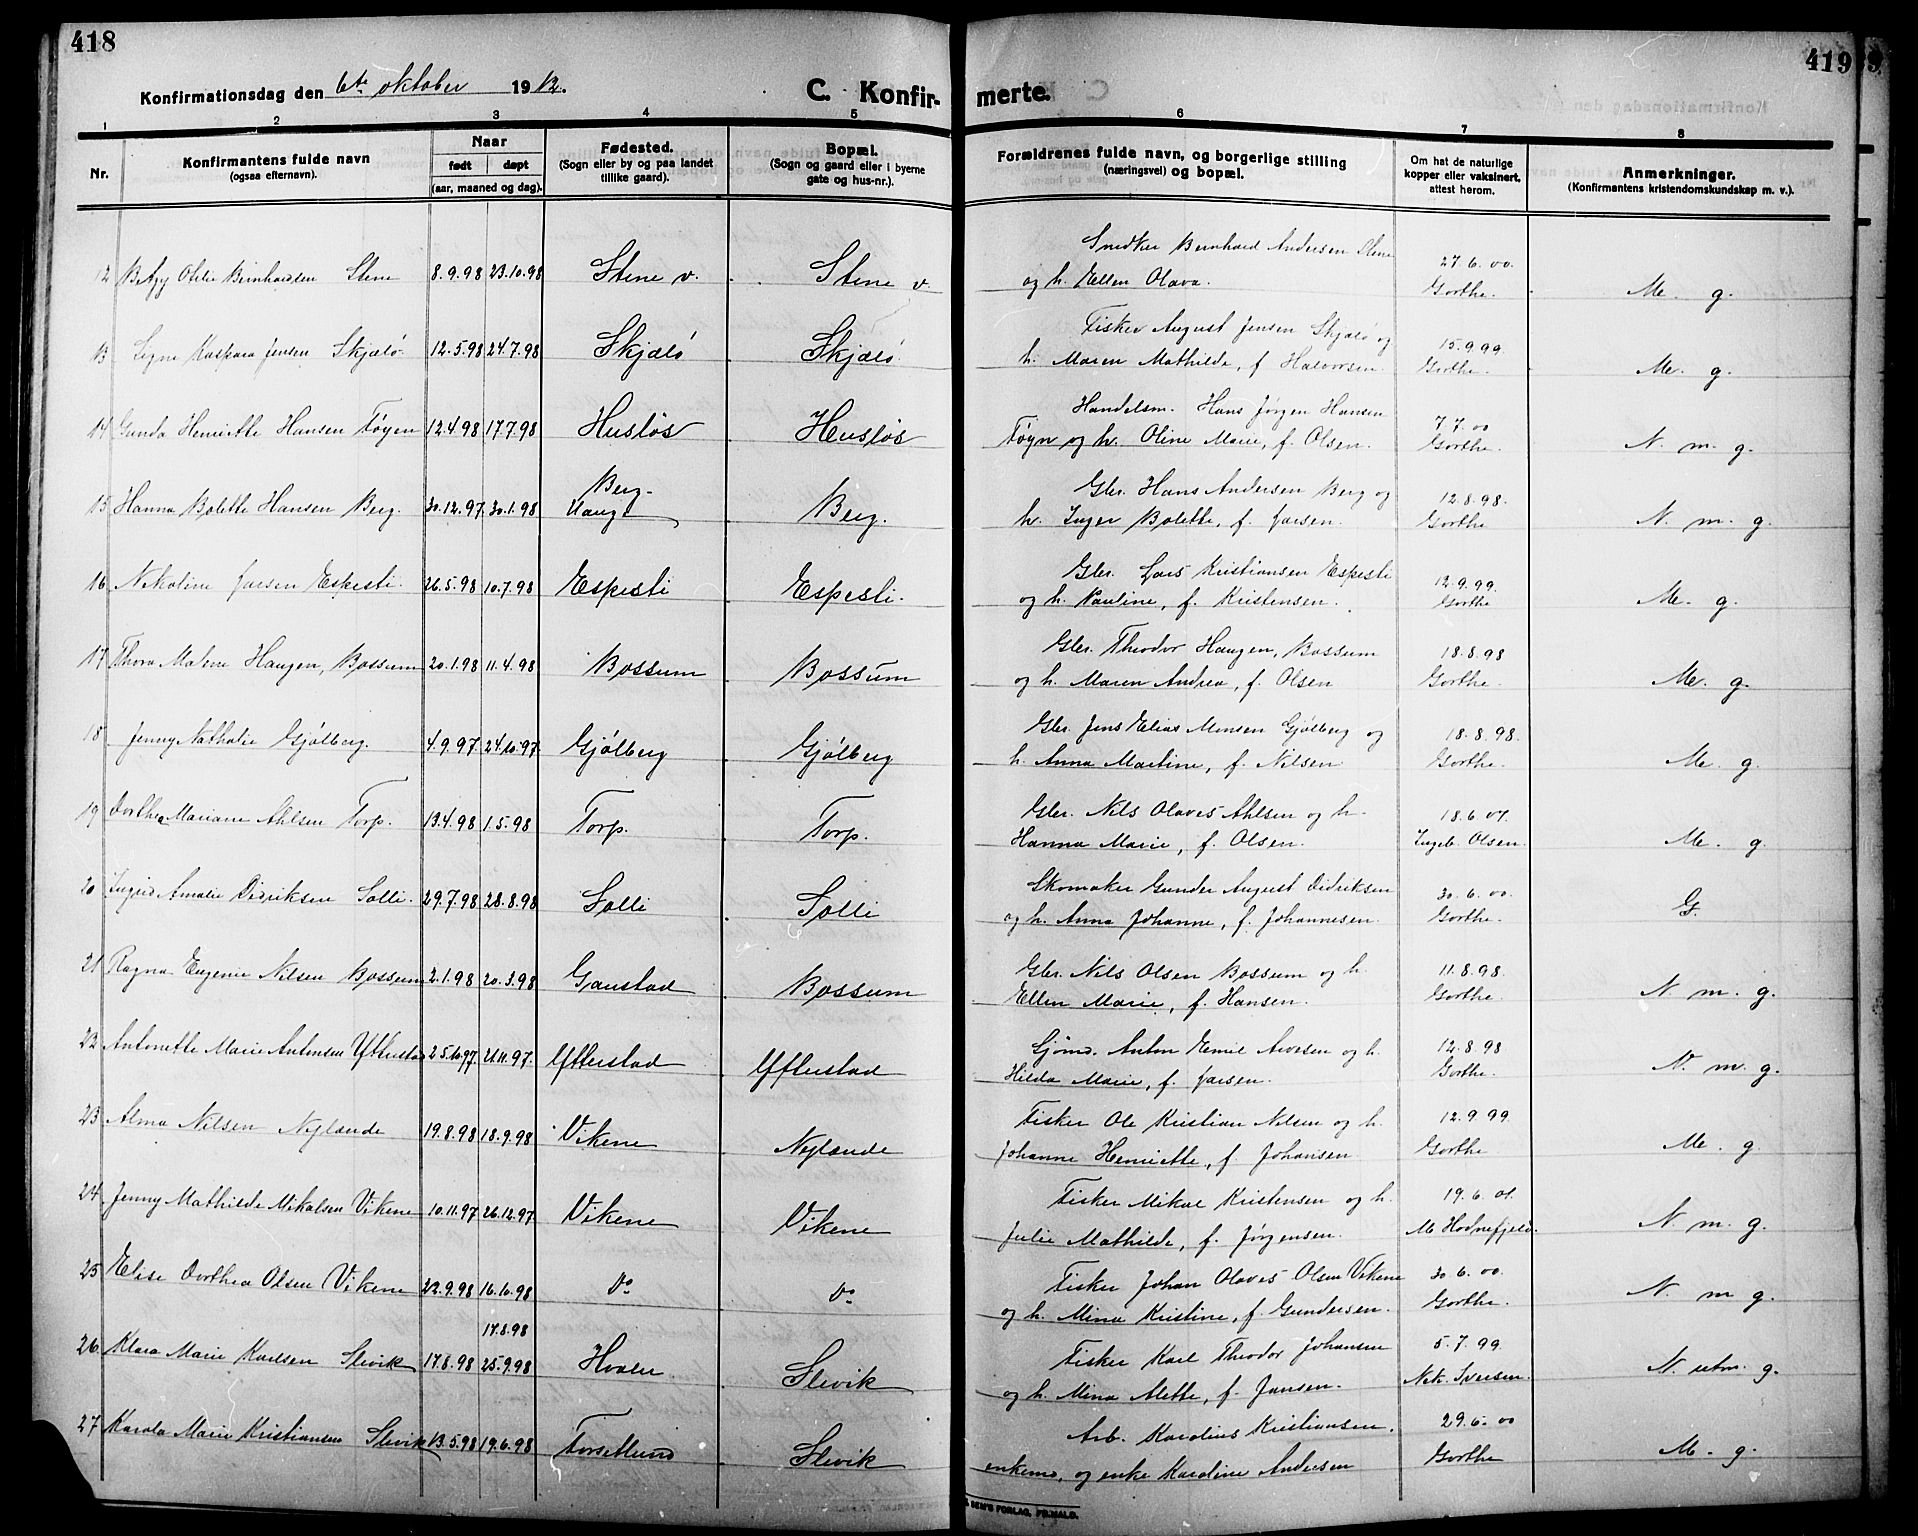 418
Konfirmationsdag den 6te oktober 1912.
C. Konfir-
merte.
419
1 2 3 4 5 6 7 8
Nr.
Konfirmantens fulde navn
(ogsaa efternavn).
Naar
født døpt
(aar, maaned og dag).
Fødested.
(Sogn eller by og paa landet
tillike gaard).
Bopæl.
(Sogn og gaard eller i byerne
gate og hus-nr.).
Forældrenes fulde navn, og borgerlige stilling
(næringsvei) og bopæl.
Om hat de naturlige
kopper eller vaksinert,
attest herom.
Anmerkninger.
(Konfirmantens kristendomskundskap m. v.).
Snedker Bernhard Andersen Stene 27.6.00.
12 Betzy Otilie Bernhardsen Stene 8.9.98 23.10.98 Stene v. Stene v. og h. Ellen Olava. Gorthe. Me. g.
Fisker August Jensen Skjælø og 15.9.99.
13 Signe Kaspara Jensen Skjælø 12.5.98 24.7.98 Skjælø Skjælø h. Maren Mathilde, f. Halvorsen. Gorthe. Me. g.
Handelsm. Hans Jørgen Hansen 7.7.00
14 Gunda Henriette Hansen Føyen 12.4.98 17.7.98 Husløs Husløs Føyn og h. Oline Marie, f. Olsen. Gorthe. N. m. g.
Berg. Gbr. Hans Andersen Berg og 12.8.98.
15 Hanna Bolette Hansen Berg. 30.12.97 30.1.98 Haugt Berg. h. Inger Bolette, f. Larsen. Gorthe. N. m. g.
Gbr. Lars Kristiansen Espesli 12.9.99.
16 Nikoline Larsen Espesli. 26.5.98 10.7.98 Espesli Espesli. og h. Pauline, f. Kristensen. Gorthe Me. g.
Gbr. Theodor Haugen, Bossum 18.8.98
17 Thora Malene Haugen, Bossum 20.1.98 11.4.98 Bossum Bossum og h. Maren Andrea, f. Olsen Gorthe. Me. g.
Gbr. Jens Elias Monsen Gjølberg og 18.8.98.
18 Jenny Nathalie Gjølberg. 4.9.97 24.10.97 Gjølberg Gjølberg h. Anna Martine, f. Nilsen Gorthe. Me. g.
Gbr. Nils Olaves Ahlsen og h. 18.6.01.
19 Dorthea Mariane Ahlsen Torp. 13.4.98 1.5.98 Torp. Torp. Hanna Marie, f. Olsen. Ingeb. Olsen. Me. g.
Skomaker Gunder August Didriksen 30.6.00.
20 Ingrid Amalie Didriksen Solli. 29.7.98 28.8.98 Solli Solli og h. Anna Johanne, f. Johannesen. Gorthe. G.
Gbr. Nils Olsen Bossum og h. 11.8.98.
21 Ragna Eugenie Nilsen Bossum 2.1.98 20.3.98 Gaustad Bossum Ellen Marie, f. Hansen. Gorthe. N. m. g.
Gjømd. Anton Emil Arvesen og h. 12.8.98
22 Antonette Marie Antonsen Ytterstad 25.10.97 21.11.97. Ytterstad Ytterstad Hilda Marie, f. Larsen. Gorthe. N. m. g.
Fisker Ole Kristian Nilsen og h. 12.9.99
23 Alma Nilsen Nylænde 19.8.98 18.9.98 Vikene Nylænde Johanne Henriette, f. Johansen Gorthe Me. g.
Fisker Mikal Kristensen og h. 19.6.01.
24 Jenny Mathilde Mikalsen Vikene 10.11.97 26.12.97 Vikene Vikene Julie Mathilde, f. Jørgensen. M Hodnefjeld. N. m. g.
Fisker Johan Olaves Olsen Vikene 30.6.00.
25 Elise Dorthea Olsen Vikene 22.9.98 16.10.98 Do Do og h. Mina Kristine, f. Gundersen. Gorthe. N. m g.
17.8.98 Fisker Karl Theodor Johansen 5.7.99.
26 Klara Marie Karlsen Slevik 17.8.98 25.9.98 Hvaler Slevik og h. Mina Alette, f. Jansen. Nik. Iversen. N. utm. g.
Arb. Karolius Kristiansen, 29.6.00
27 Karola Marie Kristiansen Slevik 13.5.98 19.6.98 Torsetlund Slevik enkemd, og enke Karoline Andersen Gorthe M. g.
SEM'S FORLAG, FR.HALD.